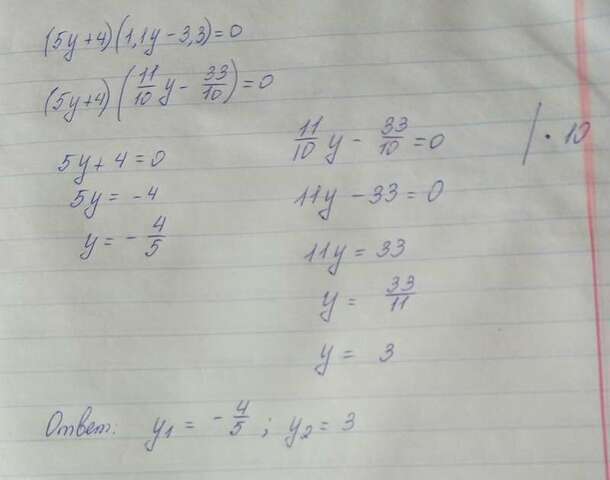 (5y+4)(1,1y-3,3)=0
(5y+4)(11/10 y - 33/10)=0
5y+4=0
5y=-4
y=-4/5
11/10 y - 33/10 =0 | · 10
11y-33=0
11y=33
y= 33/11
y= 3
Ответ: y₁ = -4/5 ; y₂ = 3